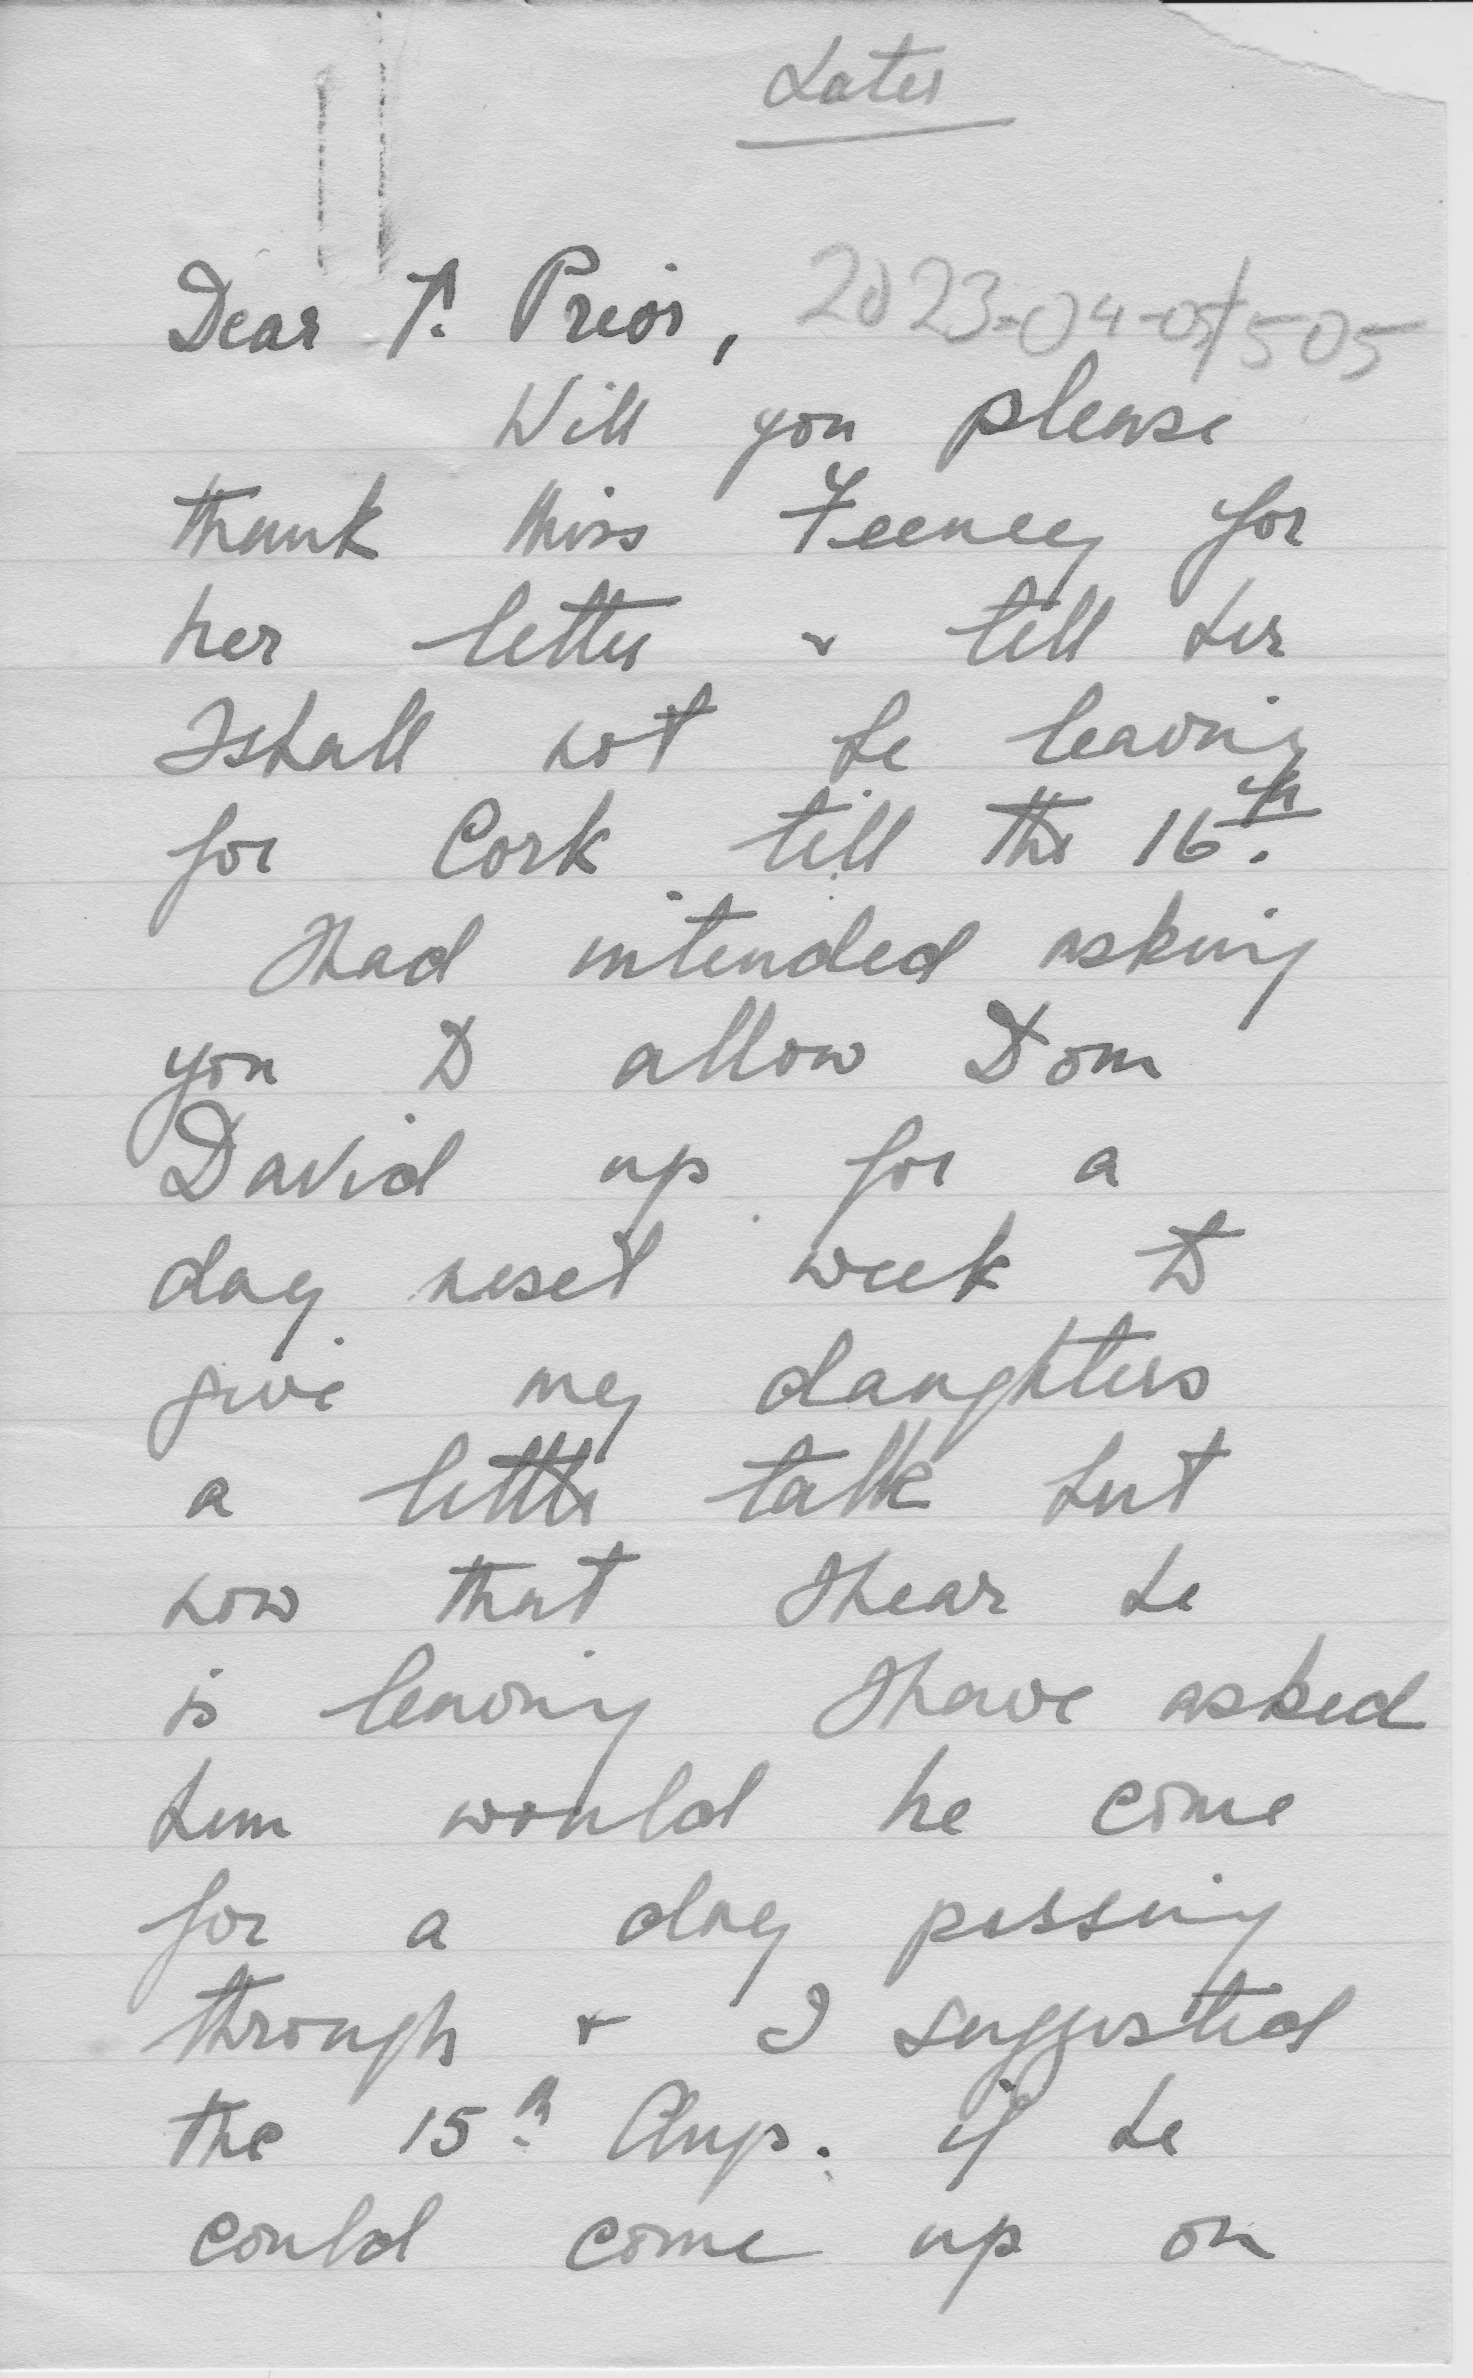 Later
Dear F. Prior, 2023-04-05/505
Will you please
thank Miss Feeney for
her letter & tell her
I shall not be leaving
for Cork till the 16th.
I had intended asking
you to allow Dom
David up for a
day next week to
give my daughters
a little talk but
now that I hear he
is leaving I have asked
him would he come
for a day passing
through & I suggested
the 15th Aug. if he
could come up on